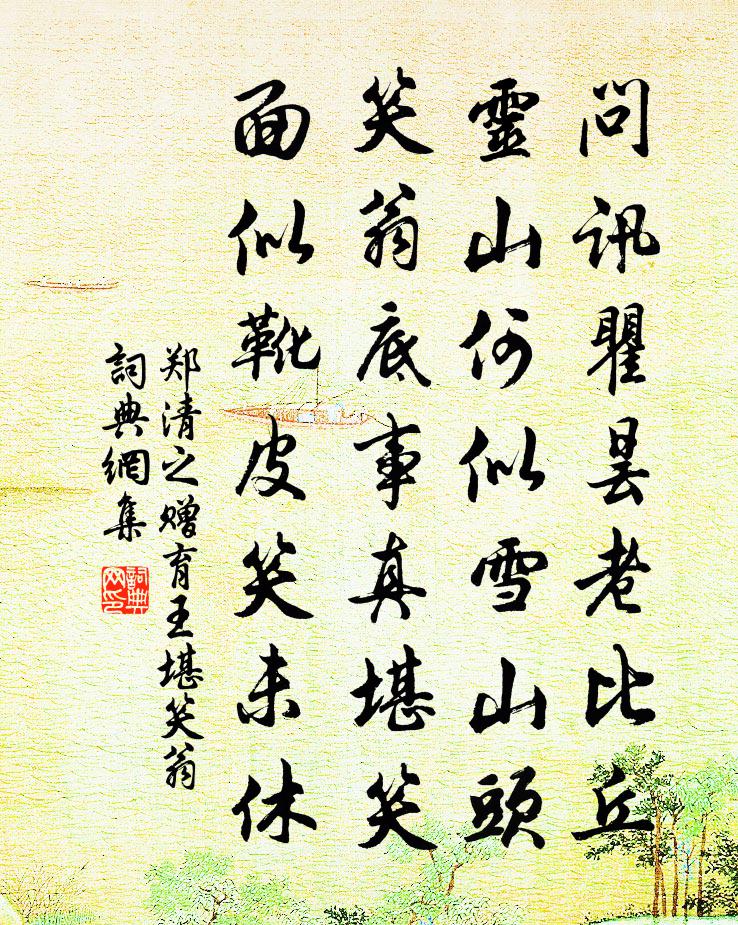 問訊瞿曇老比丘
靈山何似雪山頭
笑翁底事真堪笑
面似靴皮笑未休
郑清之赠育王堪笑翁
詞典網集
詞典網印